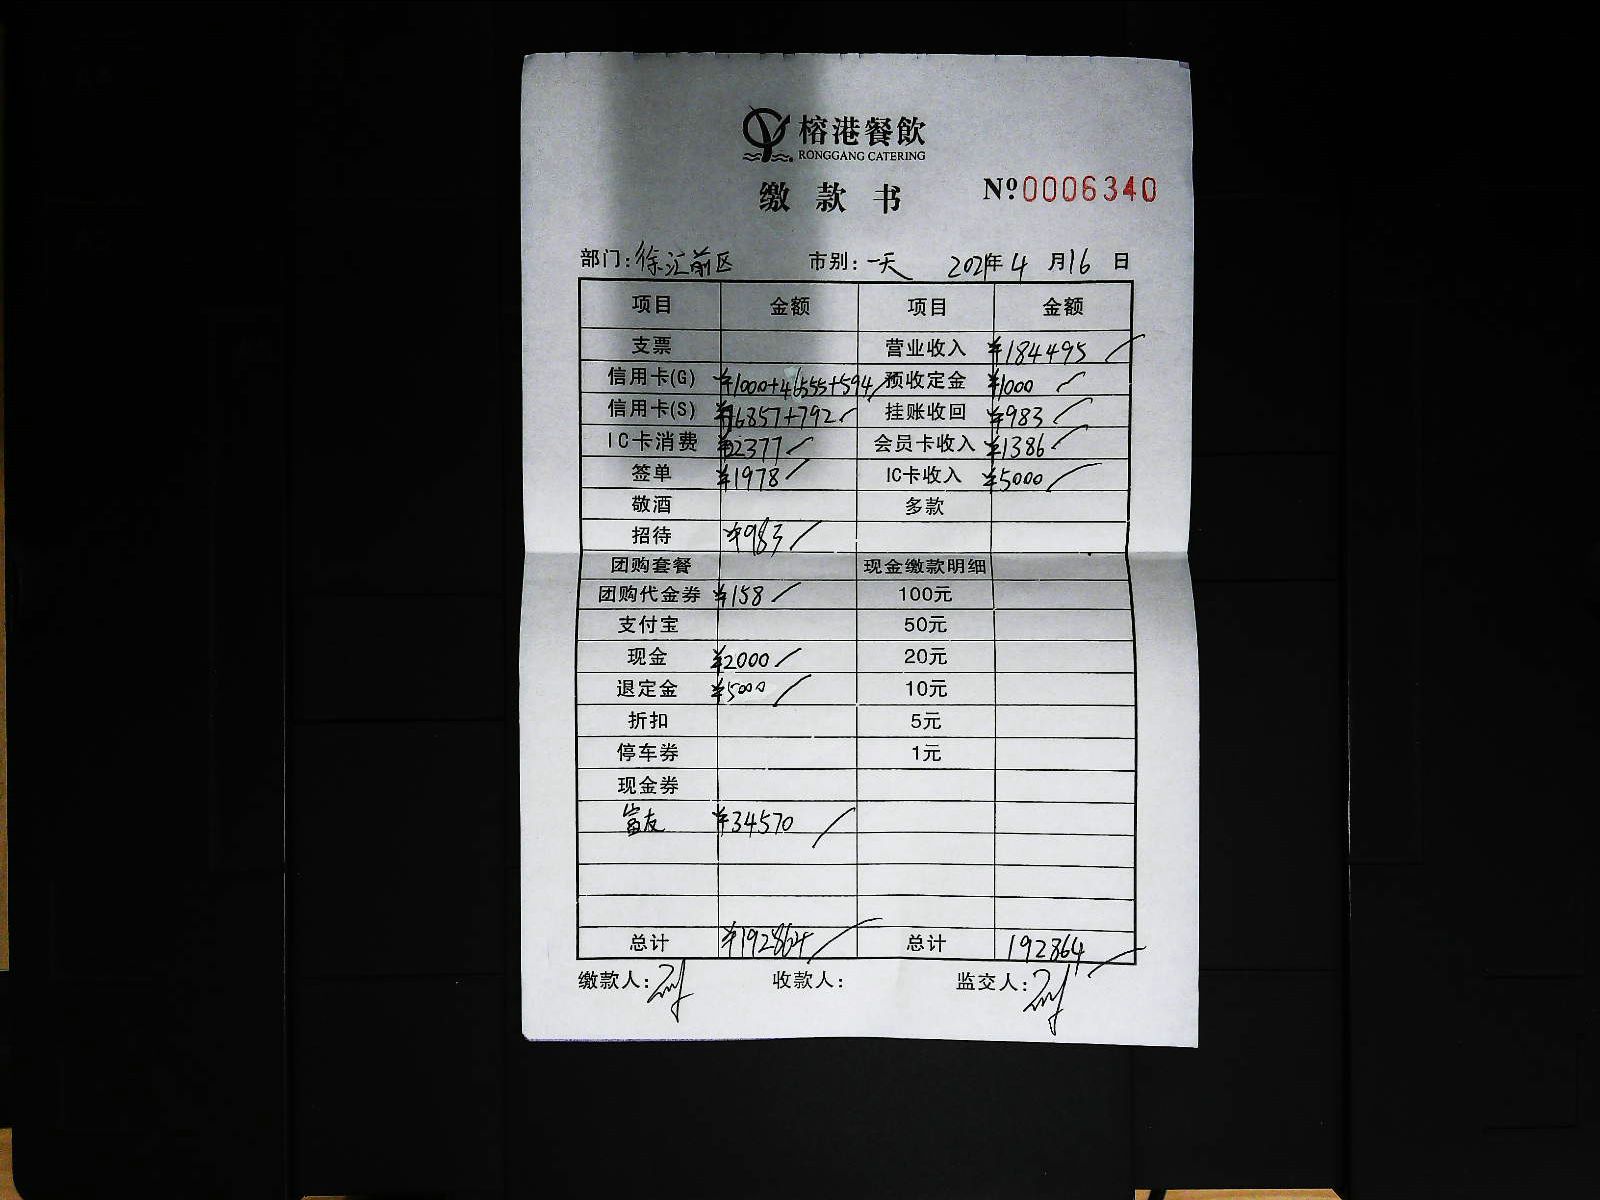 榕港餐飲
RONGGANG CATERING
缴款书 Nº0006340
部门:徐汇前区 市别:一天 2021年4月16日
项目 金额 项目 金额
支票 营业收入 ¥184495
信用卡(G) ¥1000+46555+594 预收定金 ¥1000
信用卡(S) ¥76857+792 挂账收回 ¥983
IC卡消费 ¥22377 会员卡收入 ¥1386
签单 ¥1978 IC卡收入 ¥5000
敬酒 多款
招待 ¥983
团购套餐 现金缴款明细
团购代金券 ¥158 100元
支付宝 50元
现金 ¥2000 20元
退定金 ¥5000 10元
折扣 5元
停车券 1元
现金券
富友 ¥34570
总计 ¥192864 总计 192864
缴款人: 收款人: 监交人: